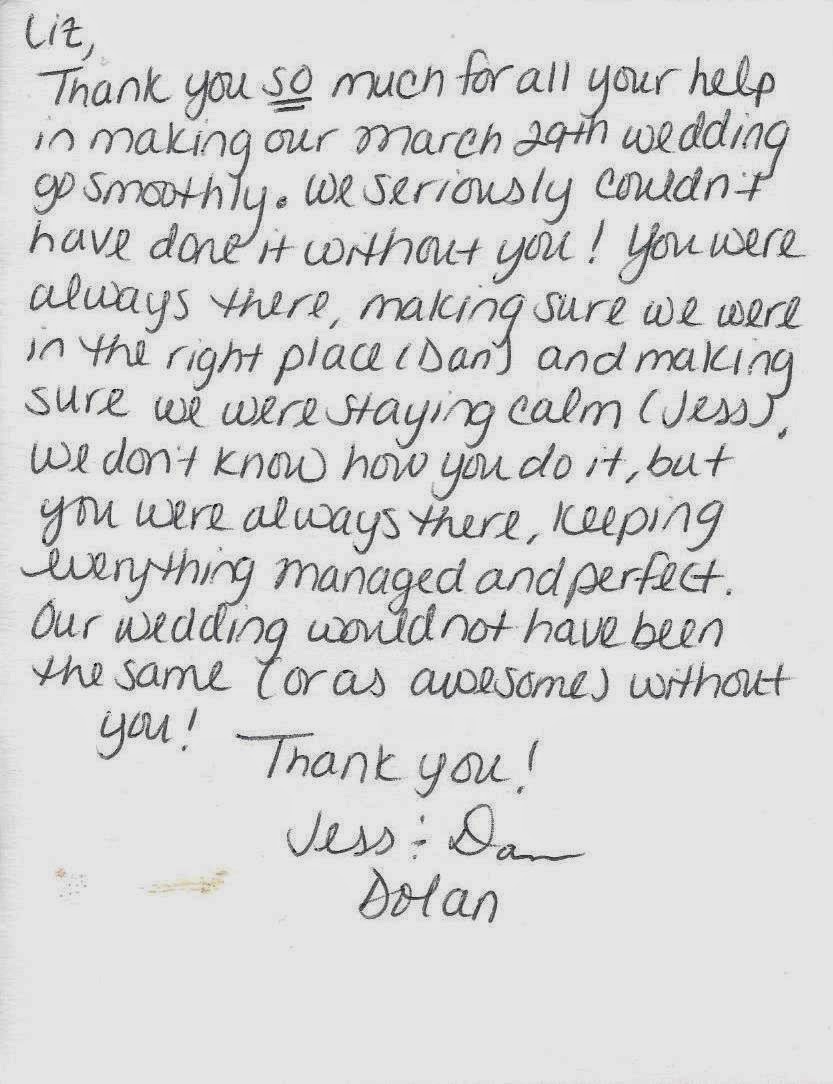 Liz,
Thank you so much for all your help
in making our march 29th wedding
go smoothly. We seriously couldn't
have done it without you! You were
always there, making sure we were
in the right place (Dan) and making
sure we were staying calm (Jess).
We don't know how you do it, but
you were always there, keeping
everything managed and perfect.
Our wedding would not have been
the same (or as awesome) without
you!
Thank you!
Jess & Dan
Dolan